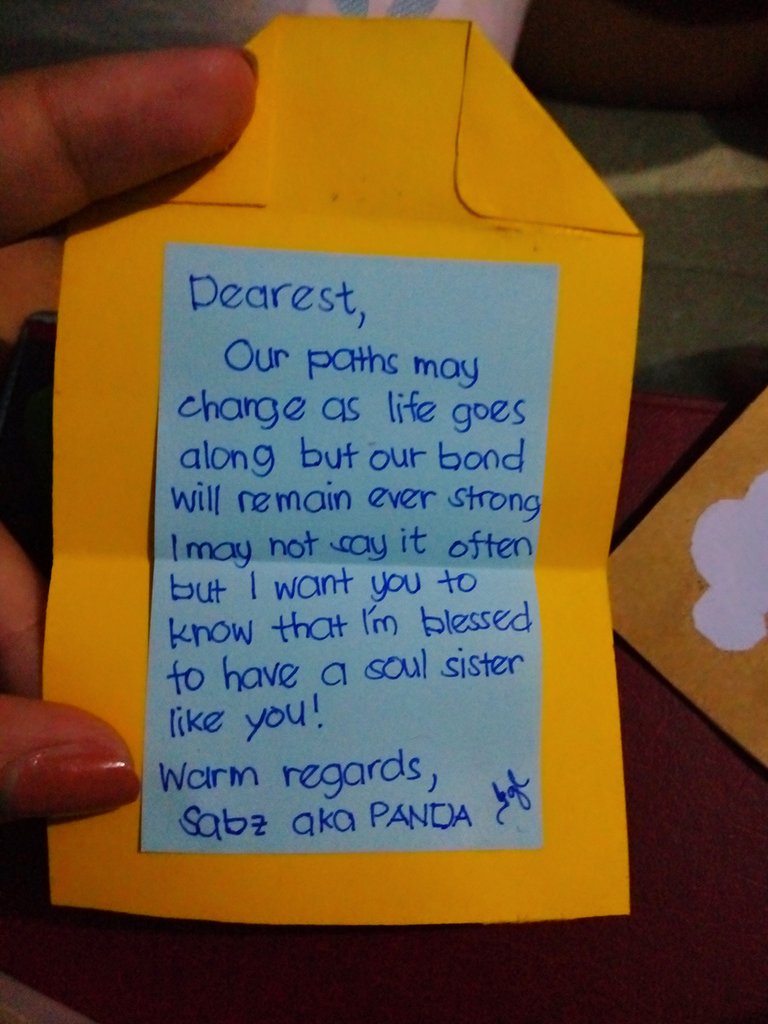 Dearest,
Our paths may
change as life goes
along but our bond
will remain ever strong
I may not say it often
but I want you to
know that I'm blessed
to have a soul sister
like you!
Warm regards,
Sabz aka PANDA